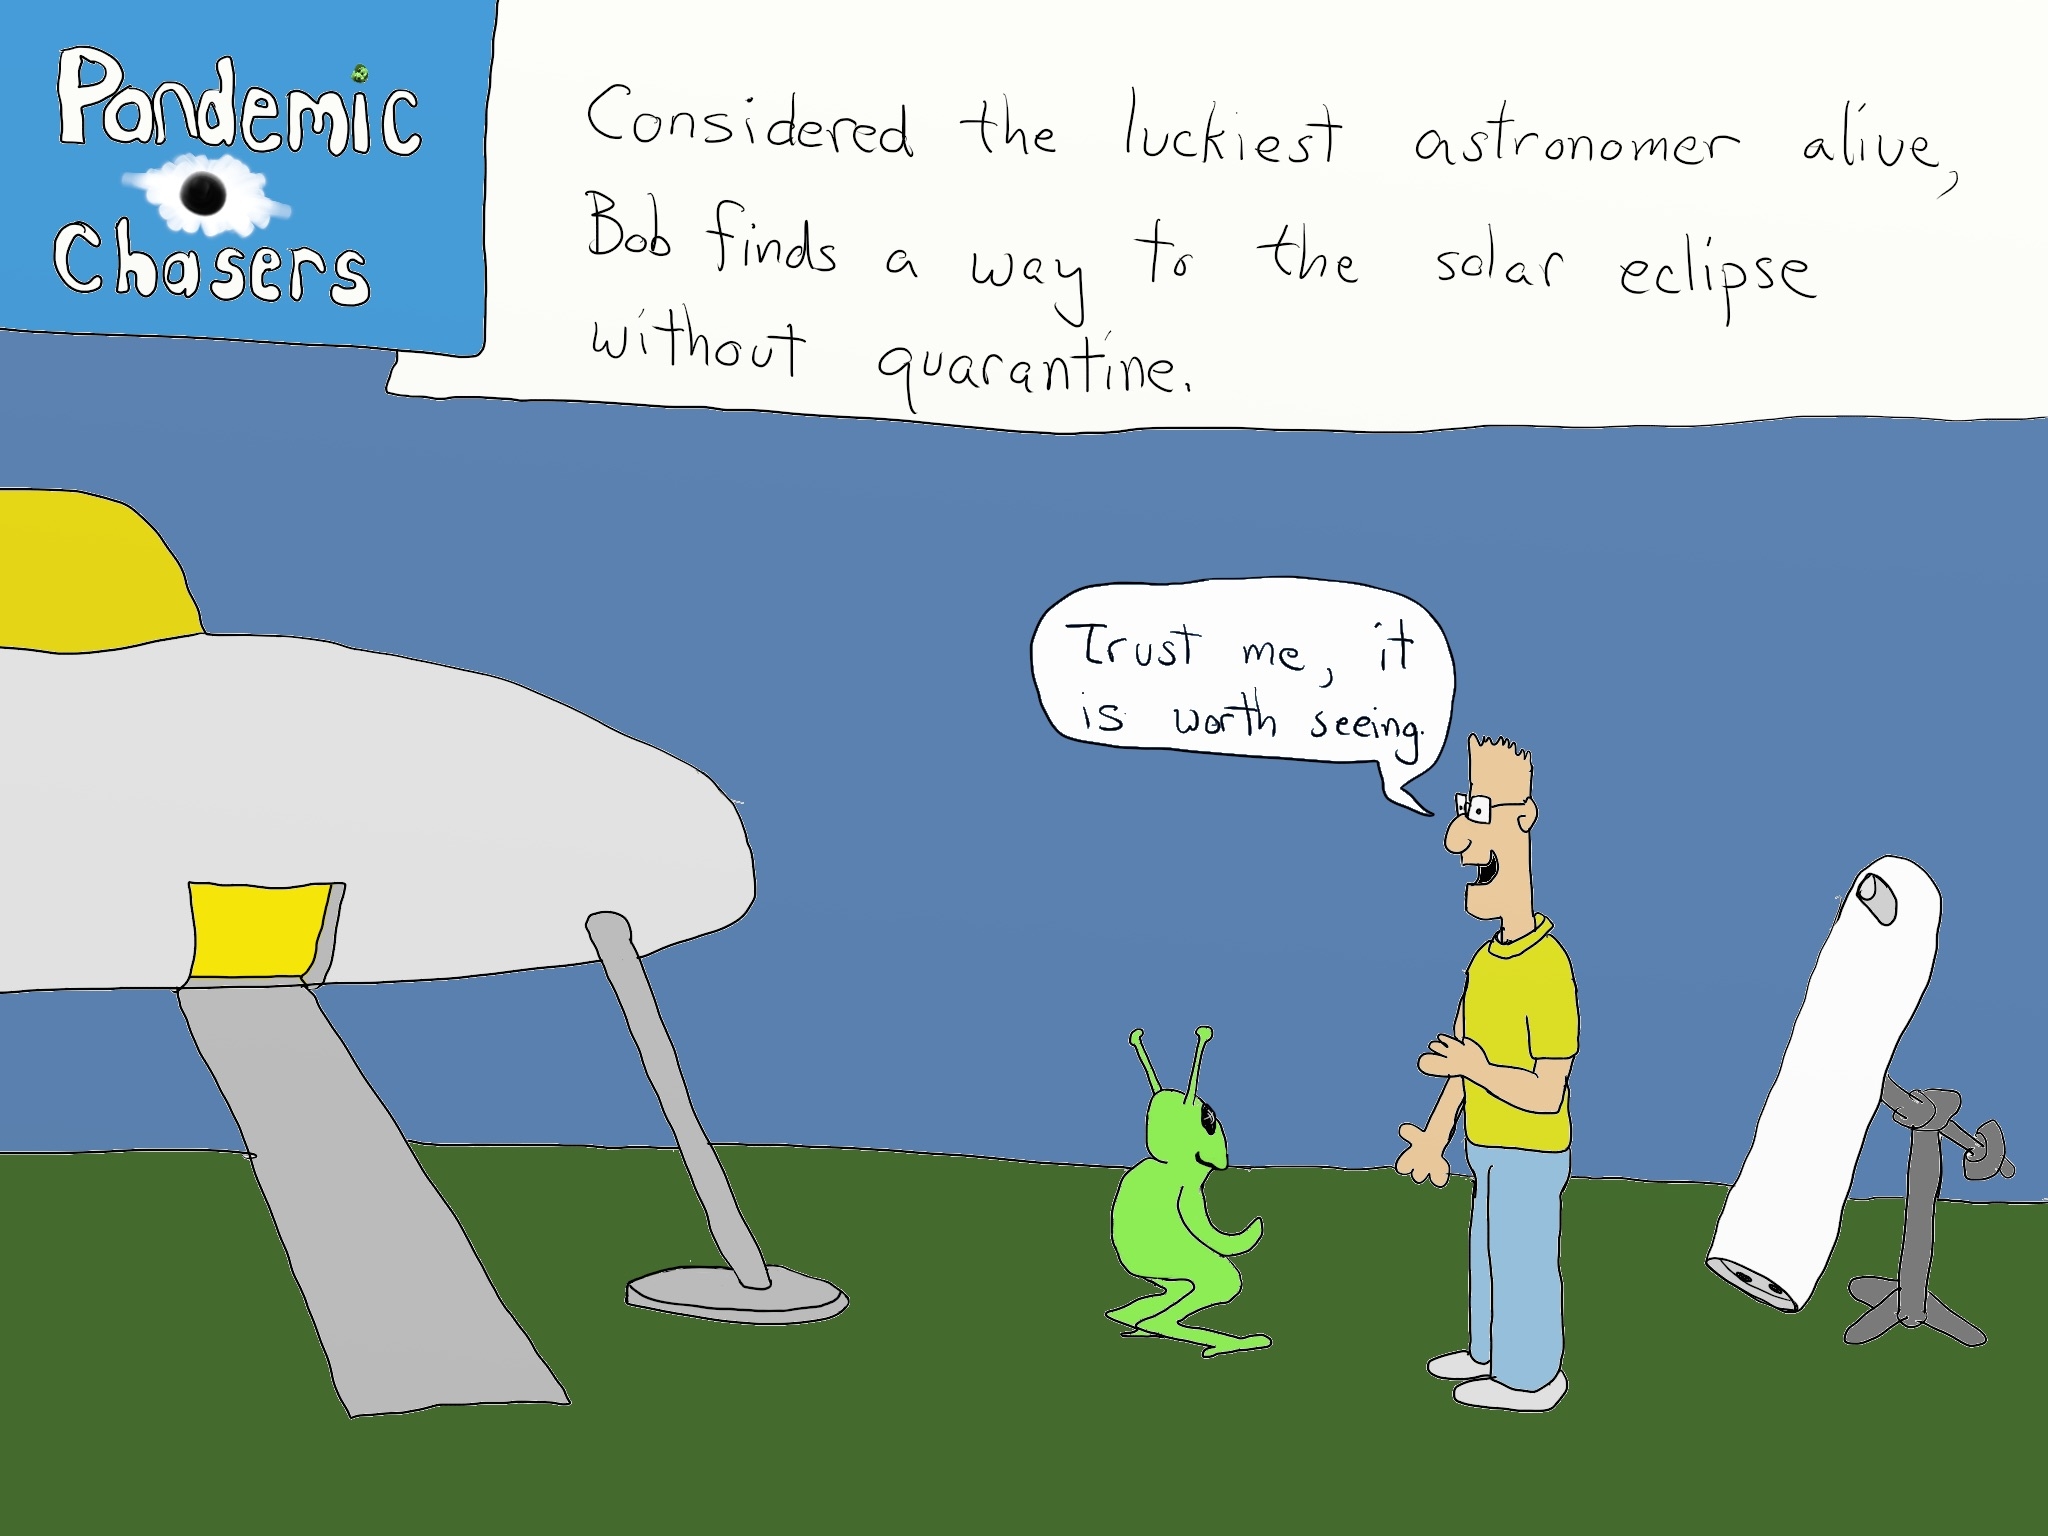 Pandemic
Chasers
Considered the luckiest astronomer alive,
Bob finds a way to the solar eclipse
without quarantine.
Trust me, it
is worth seeing.